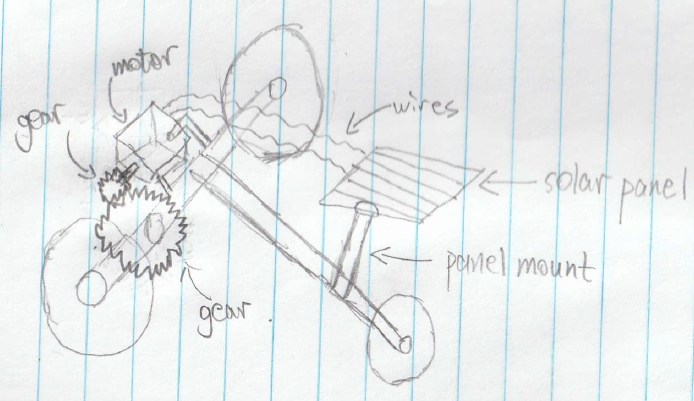 motor
gear
wires
solar panel
panel mount
gear